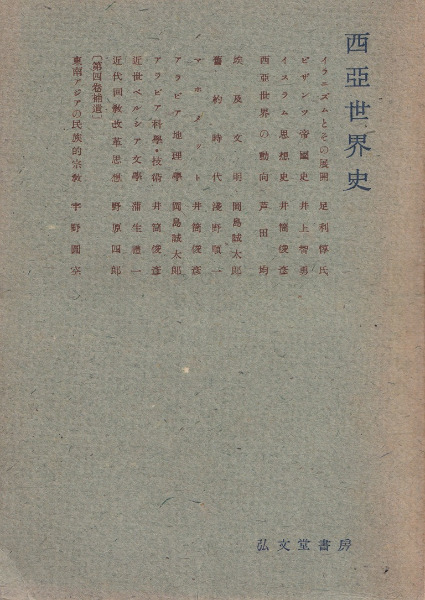 西亞世界史
イラニズムとその展開 足利惇氏
ビザンツ帝國史 井上智勇
イスラム思想史 井筒俊彦
西亞世界の動向 芦田均
埃及文明 岡島誠太郎
舊約時代 淺野順一
マホメット 井筒俊彦
アラビア地理學 岡島誠太郎
アラビア科學・技術 井筒俊彦
近世ペルシア文學 蒲生禮一
近代回敎改革思想 野原四郎
〔第四卷補遺〕
東南アジアの民族的宗敎 宇野圓空
弘文堂書房